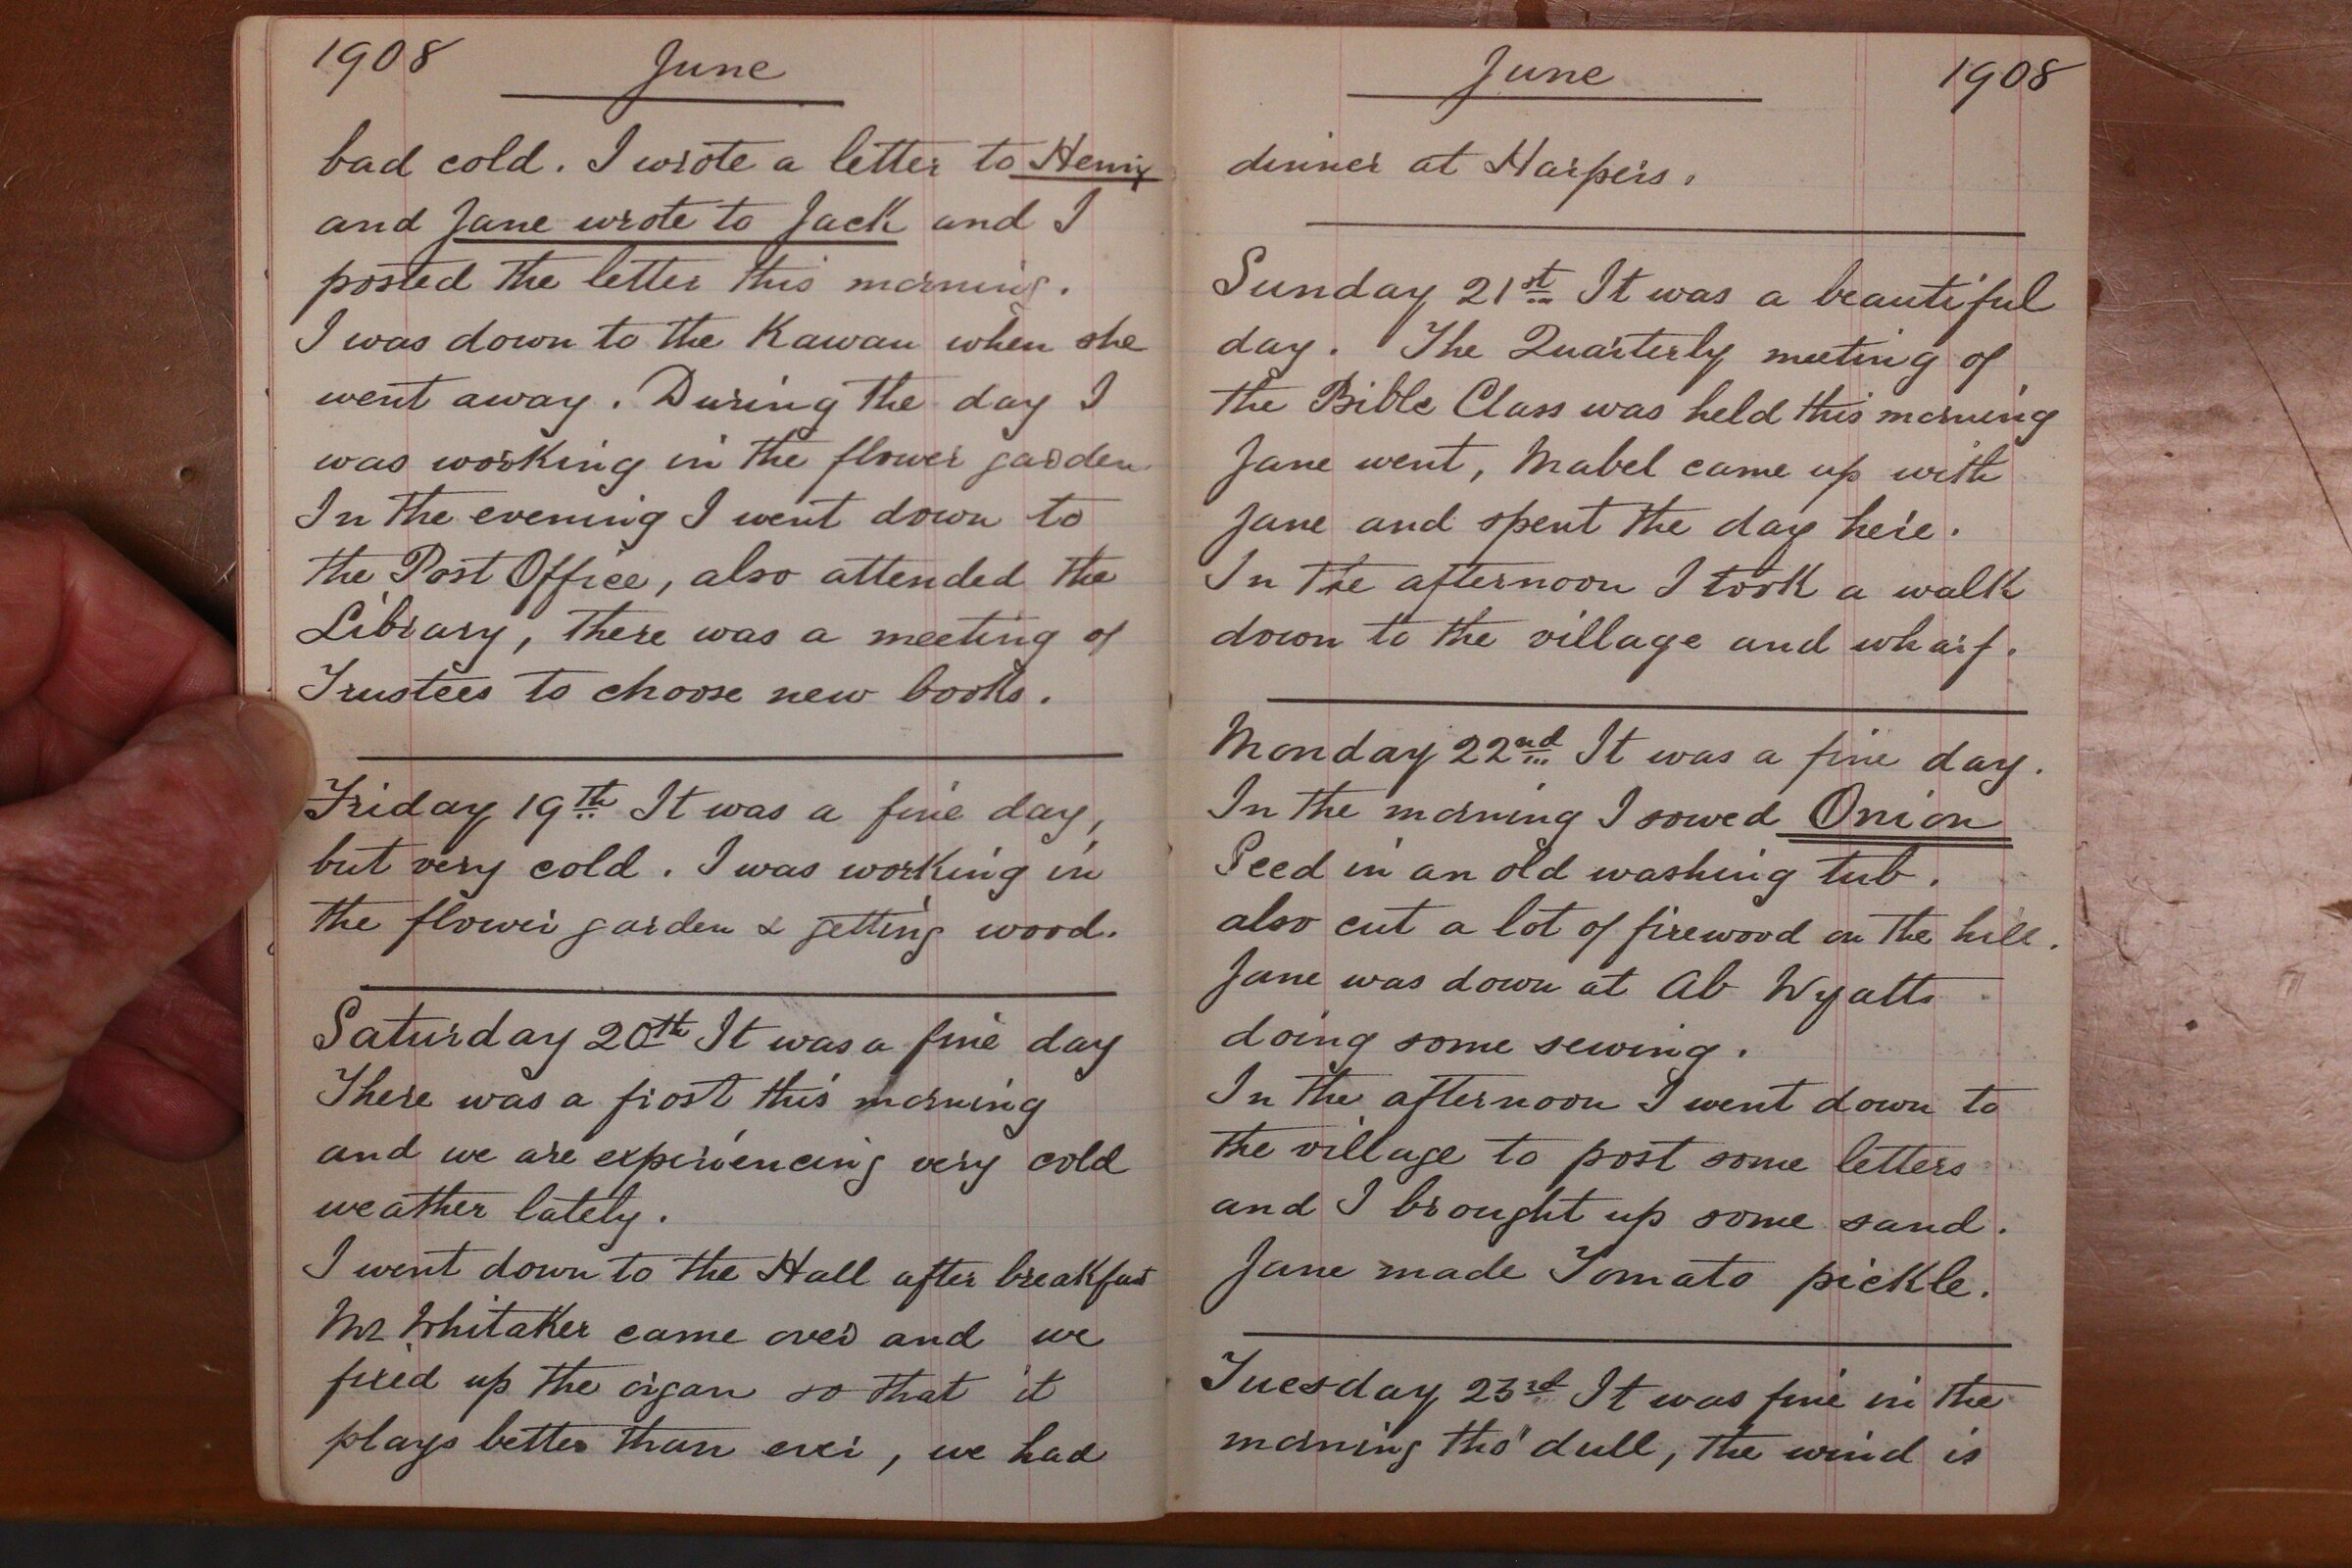 1908 June
bad cold. I wrote a letter to Henry
and Jane wrote to Jack and I
posted the letter this morning.
I was down to the Kawau when she
went away. During the day I
was working in the flower garden
In the evening I went down to
the Post Office, also attended the
Library, there was a meeting of
Trustees to choose new books.
Friday 19th It was a fine day,
but very cold. I was working in
the flower garden & getting wood.
Saturday 20th It was a fine day
There was a frost this morning
and we are experiencing very cold
weather lately.
I went down to the Hall after breakfast
Mr Whitaker came over and we
fixed up the organ so that it
plays better than ever, we had
June 1908
dinner at Harpers.
Sunday 21st It was a beautiful
day. The Quarterly meeting of
the Bible Class was held this morning
Jane went, Mabel came up with
Jane and spent the day here.
In the afternoon I took a walk
down to the village and wharf.
Monday 22nd It was a fine day.
In the morning I sowed Onion
Seed in an old washing tub.
also cut a lot of firewood on the hill.
Jane was down at Ab Wyatts
doing some sewing.
In the afternoon I went down to
the village to post some letters
and I brought up some sand.
Jane made Tomato pickle.
Tuesday 23rd It was fine in the
morning tho' dull, the wind is